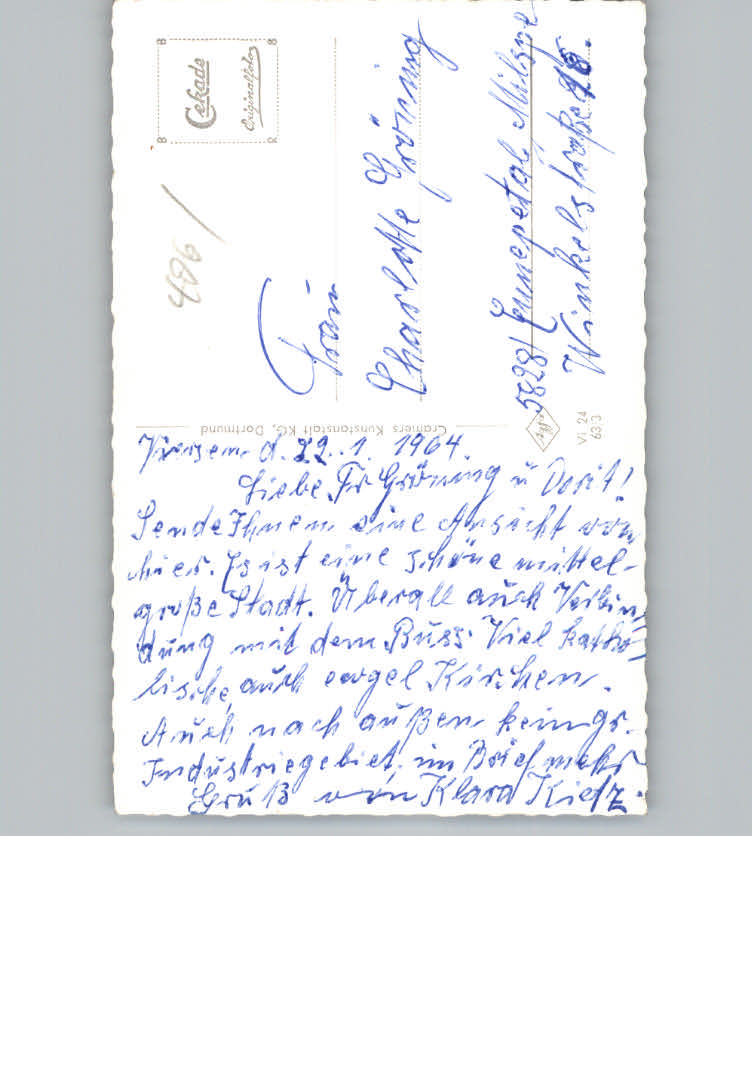 Viersen d. 22. 1. 1964.
Liebe Fr Gröning u Dorit!
Sende Ihnen eine Ansicht von
hier. Es ist eine schöne mittel-
große Stadt. Überall auch Verbin-
dung mit dem Buss. Viel katho-
lische, auch evgel Kirchen.
Auch nach außen kein gr.
Industriegebiet, im Brief mehr
Gruß von Klara Kietz.
Frau
Charlotte Gröning
5828 / Ennepetal, Milspe
Winkelstraße 18.
486 /
Cekade
Originalfoto
Cramers Kunstanstalt KG, Dortmund
Vi 24
633